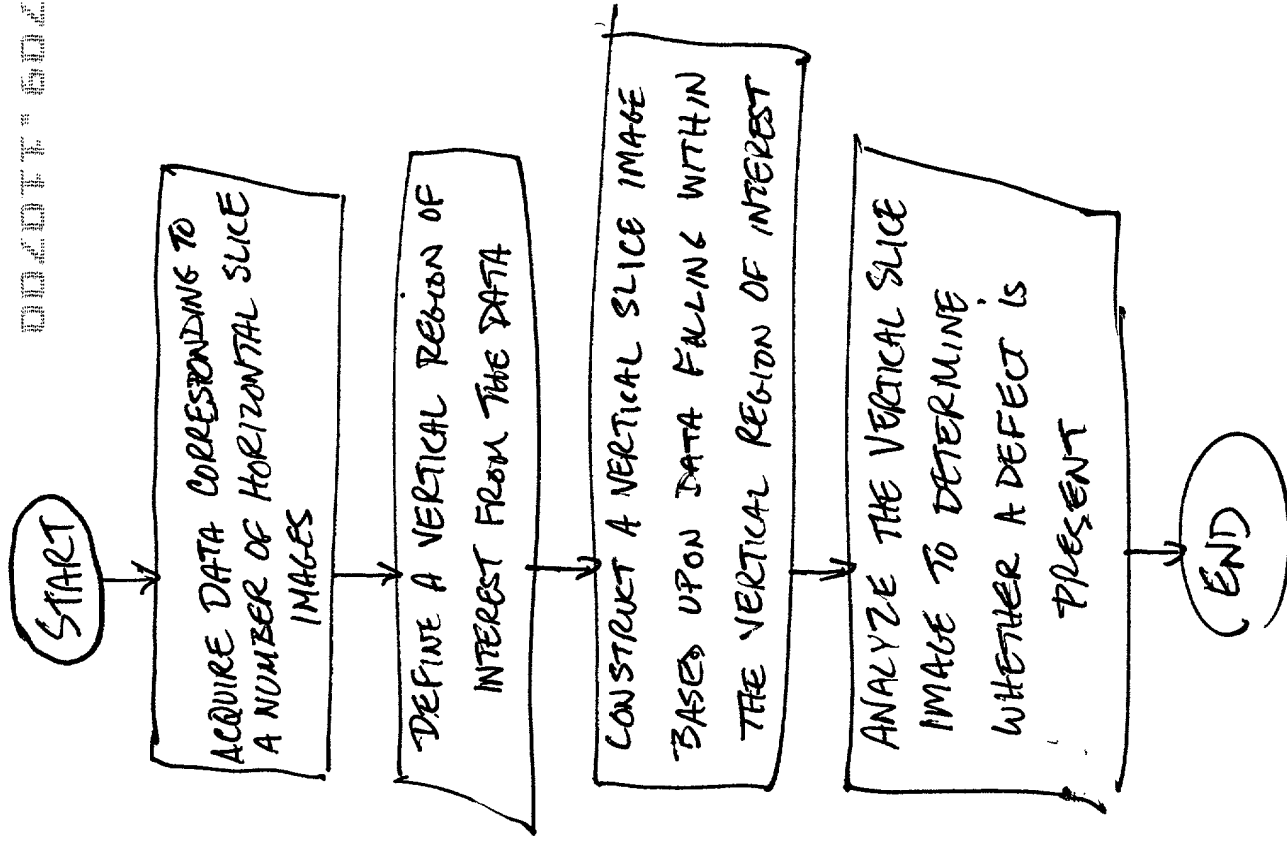 START
ACQUIRE DATA CORRESPONDING TO
A NUMBER OF HORIZONTAL SLICE
IMAGES
DEFINE A VERTICAL REGION OF
INTEREST FROM THE DATA
CONSTRUCT A VERTICAL SLICE IMAGE
BASED UPON DATA FALLING WITHIN
THE VERTICAL REGION OF INTEREST
ANALYZE THE VERTICAL SLICE
IMAGE TO DETERMINE
WHETHER A DEFECT IS
PRESENT
END